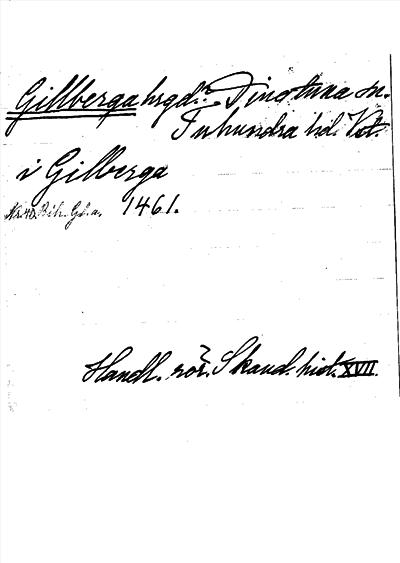 Gillberga hrgd. Dingtuna sn.
Tuhundra hd. Vstm.
i Gilberga
1461.
Handl. rör. Skand. hist. XVII.